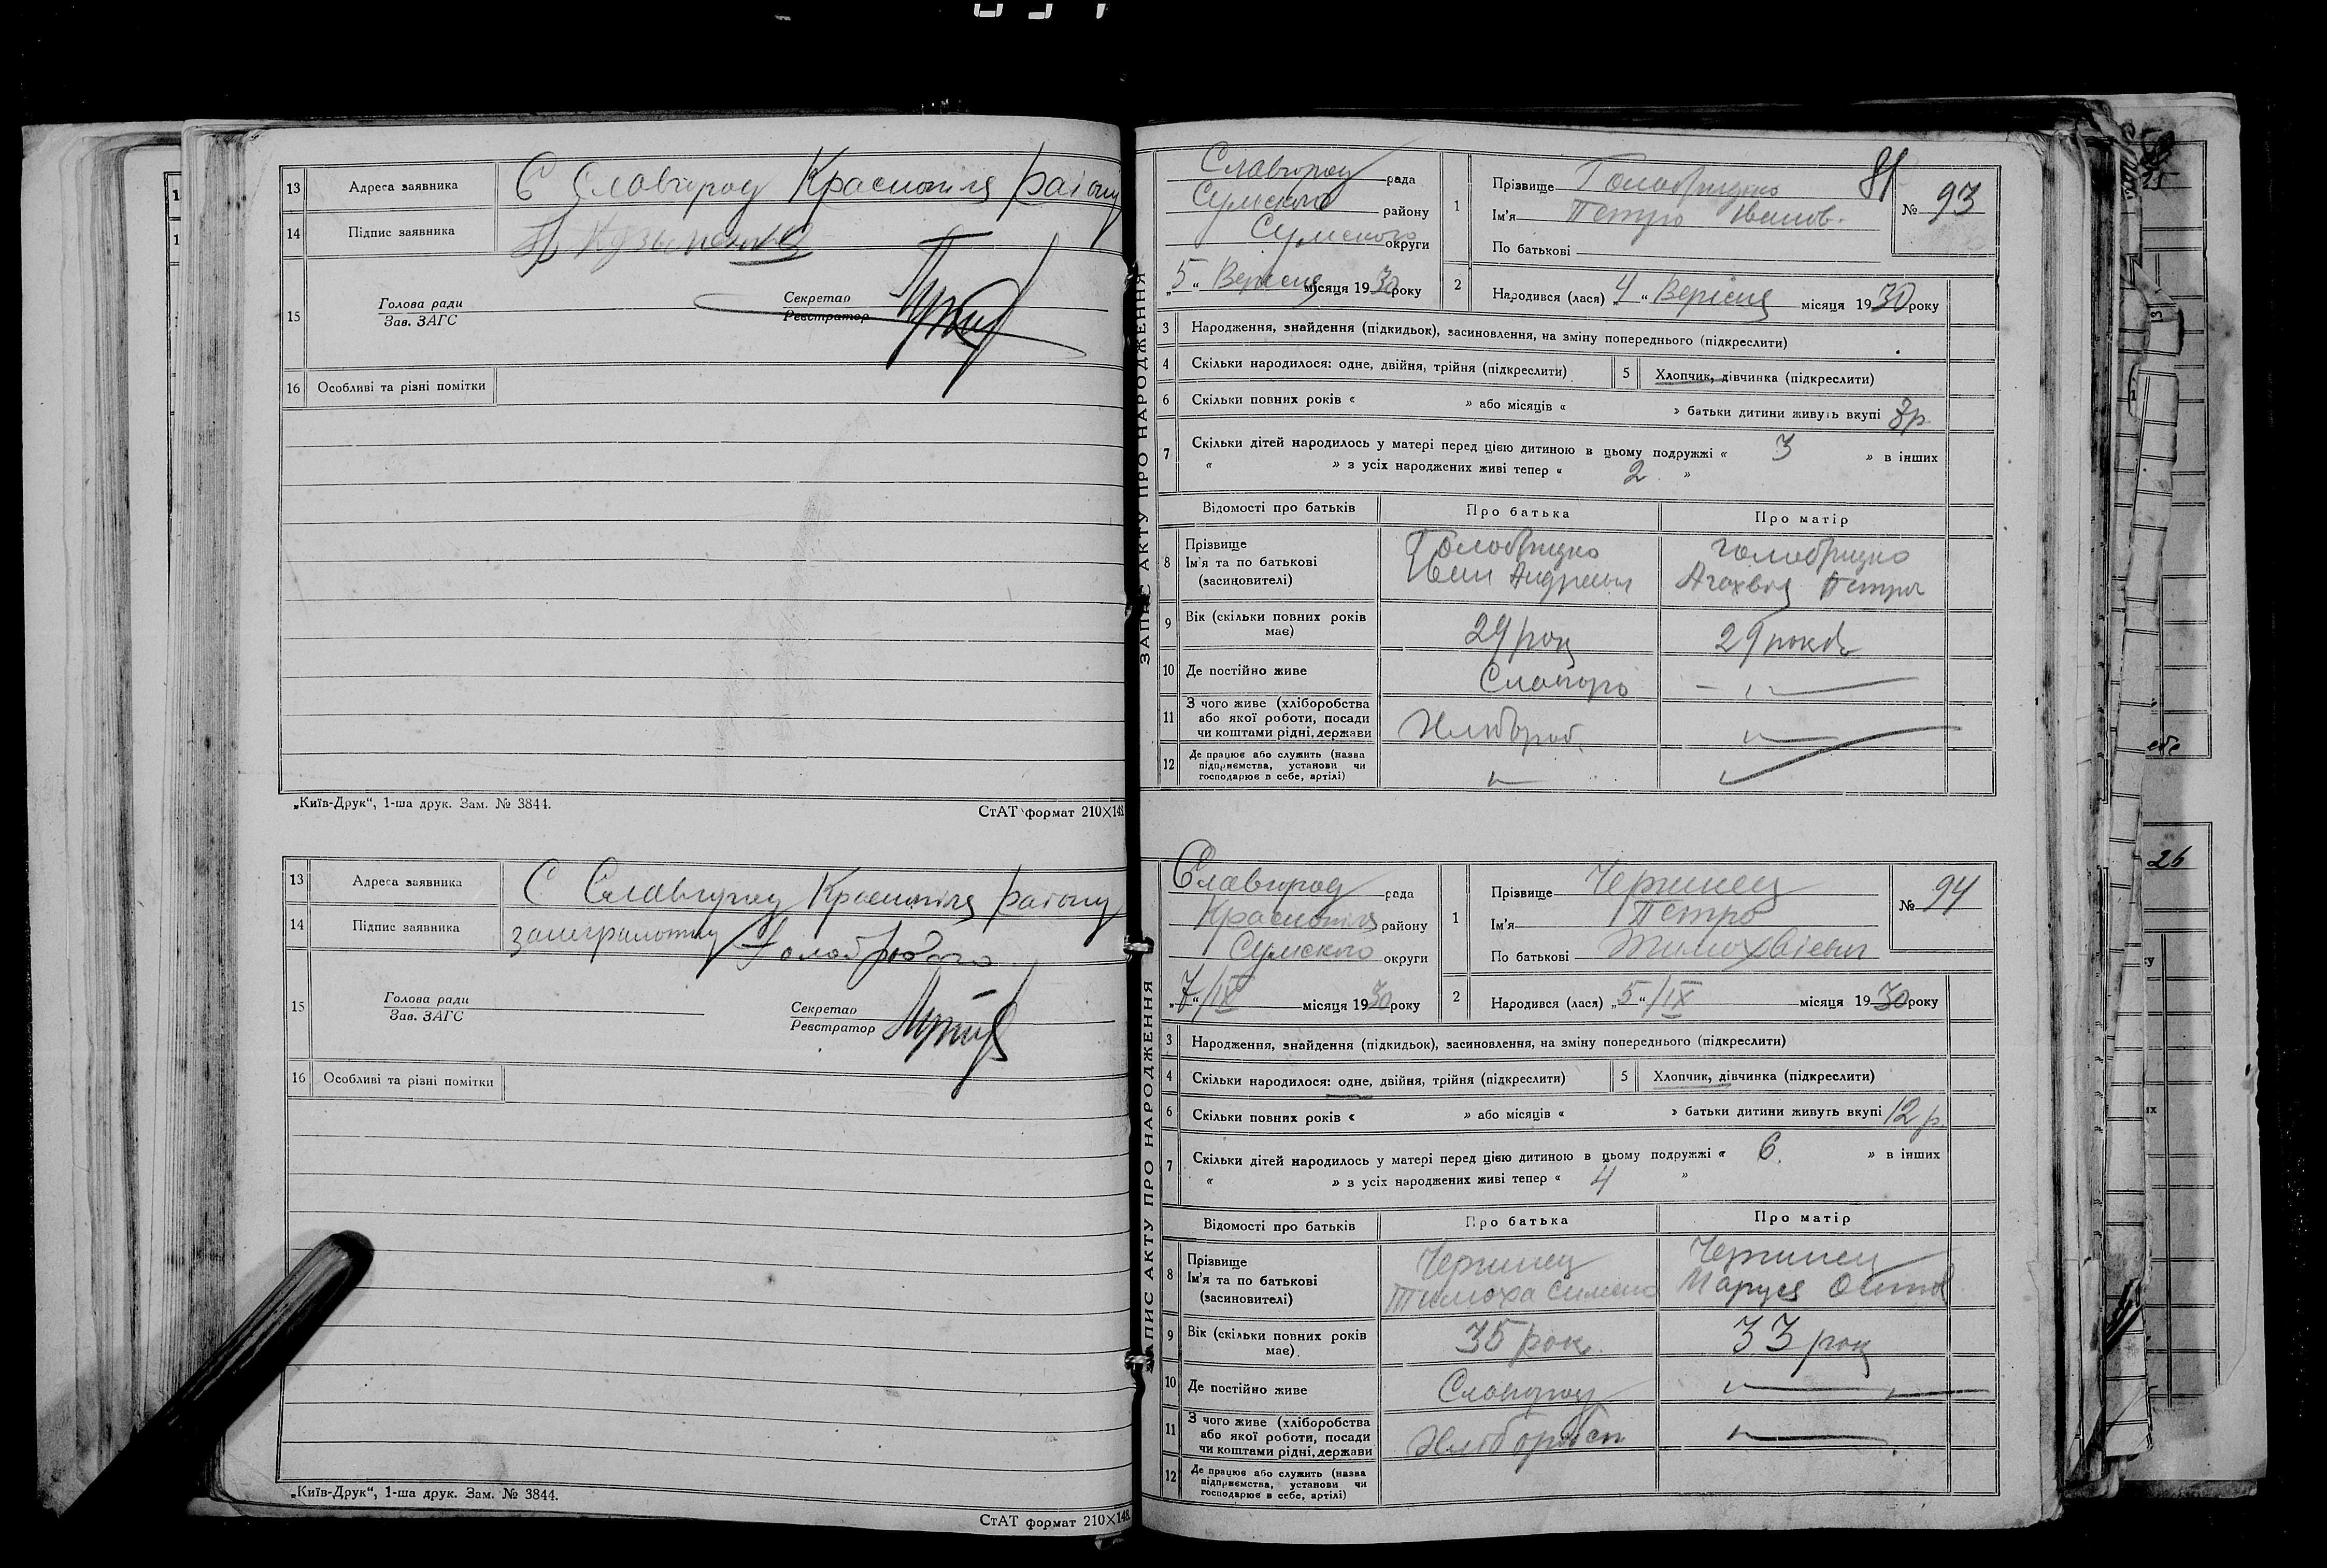 13 Адреса заявника С Славгород Краснопіля району
14 Підпис заявника
15 Голова ради
Зав. ЗАГС
Секретар
Реєстратор
16 Особливі та різні помітки
„Київ-Друк“, 1-ша друк. Зам. № 3844.
СтАТ формат 210×148
13 Адреса заявника С Славгород Краснопіля району
14 Підпис заявника
15 Голова ради
Зав. ЗАГС
Секретар
Реєстратор
16 Особливі та різні помітки
„Київ-Друк“, 1-ша друк. Зам. № 3844.
СтАТ формат 210×148
ЗАПИС АКТУ ПРО НАРОДЖЕННЯ
81
Славгород рада
Сумского району
Сумского округи
„5“ Вересня місяця 1930 року
1 Прізвище
Ім'я Петро Іванов.
По батькові
№ 93
2 Народився (лася) 4 “ Вересня місяця 1930 року
3 Народження, знайдення (підкидьок), засиновлення, на зміну попереднього (підкреслити)
4 Скільки народилося: одне, двійня, трійня (підкреслити)
5 Хлопчик, дівчинка (підкреслити)
6 Скільки повних років « » або місяців « » батьки дитини живуть вкупі
7 Скільки дітей народилось у матері перед цією дитиною в цьому подружжі « 3 » в інших
« » з усіх народжених живі тепер « 2 »
Відомості про батьків Про батька Про матір
8 Прізвище
Ім'я та по батькові
(засиновителі)
9 Вік (скільки повних років має) 29 рок 29 років
10 Де постійно живе
11 З чого живе (хліборобства
або якої роботи, посади
чи коштами рідні, держави
Хлібороб.
12 Де працює або служить (назва
підприємства, установи чи
господарює в себе, артілі)
ЗАПИС АКТУ ПРО НАРОДЖЕННЯ
Славгород рада
Краснопіля району
Сумского округи
„7“/IX місяця 1930 року
1 Прізвище Чернинец
Ім'я Петро
По батькові Тимохвієвич
№ 94
2 Народився (лася) „5“/IX місяця 1930 року
3 Народження, знайдення (підкидьок), засиновлення, на зміну попереднього (підкреслити)
4 Скільки народилося: одне, двійня, трійня (підкреслити)
5 Хлопчик, дівчинка (підкреслити)
6 Скільки повних років « » або місяців « » батьки дитини живуть вкупі 12 р
7 Скільки дітей народилось у матері перед цією дитиною в цьому подружжі « 6. » в інших
« » з усіх народжених живі тепер « 4 »
Відомості про батьків Про батька Про матір
8 Прізвище
Ім'я та по батькові
(засиновителі)
Чернинец Чернинец
Тимоха Маруся
9 Вік (скільки повних років має) 35 рок. 33 рок
10 Де постійно живе Славгород
11 З чого живе (хліборобства
або якої роботи, посади
чи коштами рідні, держави
12 Де працює або служить (назва
підприємства, установи чи
господарює в себе, артілі)
26